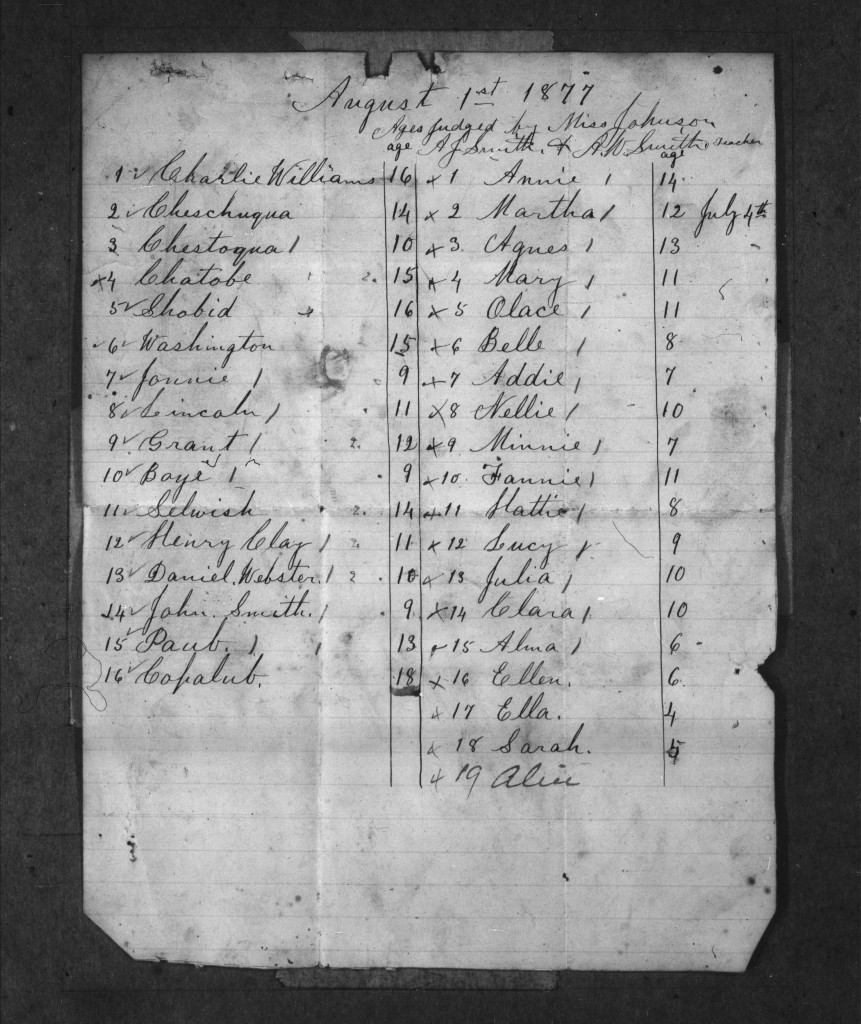 August 1st 1877
Ages judged by Miss Johnson
age A J Smith. & A. W. Smith. teacher
age
1 ✓ Charlie Williams 16 x 1 Annie / 14
2 ✓ Cheschuqua 14 x 2 Martha / 12 July 4th
3 Chestoqua / 10 x 3 Agnes / 13
x 4 Chatobe 2. 15 x 4 Mary / 11
5 ✓ Shobid 16 x 5 Olace / 11
✓ 6 ✓ Washington 15 x 6 Belle / 8
7 ✓ Jonnie / 9 x 7 Addie / 7
8 ✓ Lincoln / 11 x 8 Nellie / 10
9 ✓ Grant / 2. 12 x 9 Minnie / 7
10 ✓ Boye / 9 x 10 Fannie / 11
11 ✓ Selwish 2. 14 x 11 Hattie / 8
12 ✓ Henry Clay / 2 11 x 12 Lucy / 9
13 ✓ Daniel. Webster. / 2 10 x 13 Julia / 10
14 ✓ John. Smith. / 9 x 14 Clara / 10
15 ✓ Paub. / 13 x 15 Alma / 6
16 ✓ Copalub. 18 x 16 Ellen. 6
x 17 Ella. 4
x 18 Sarah. 5
x 19 Alice